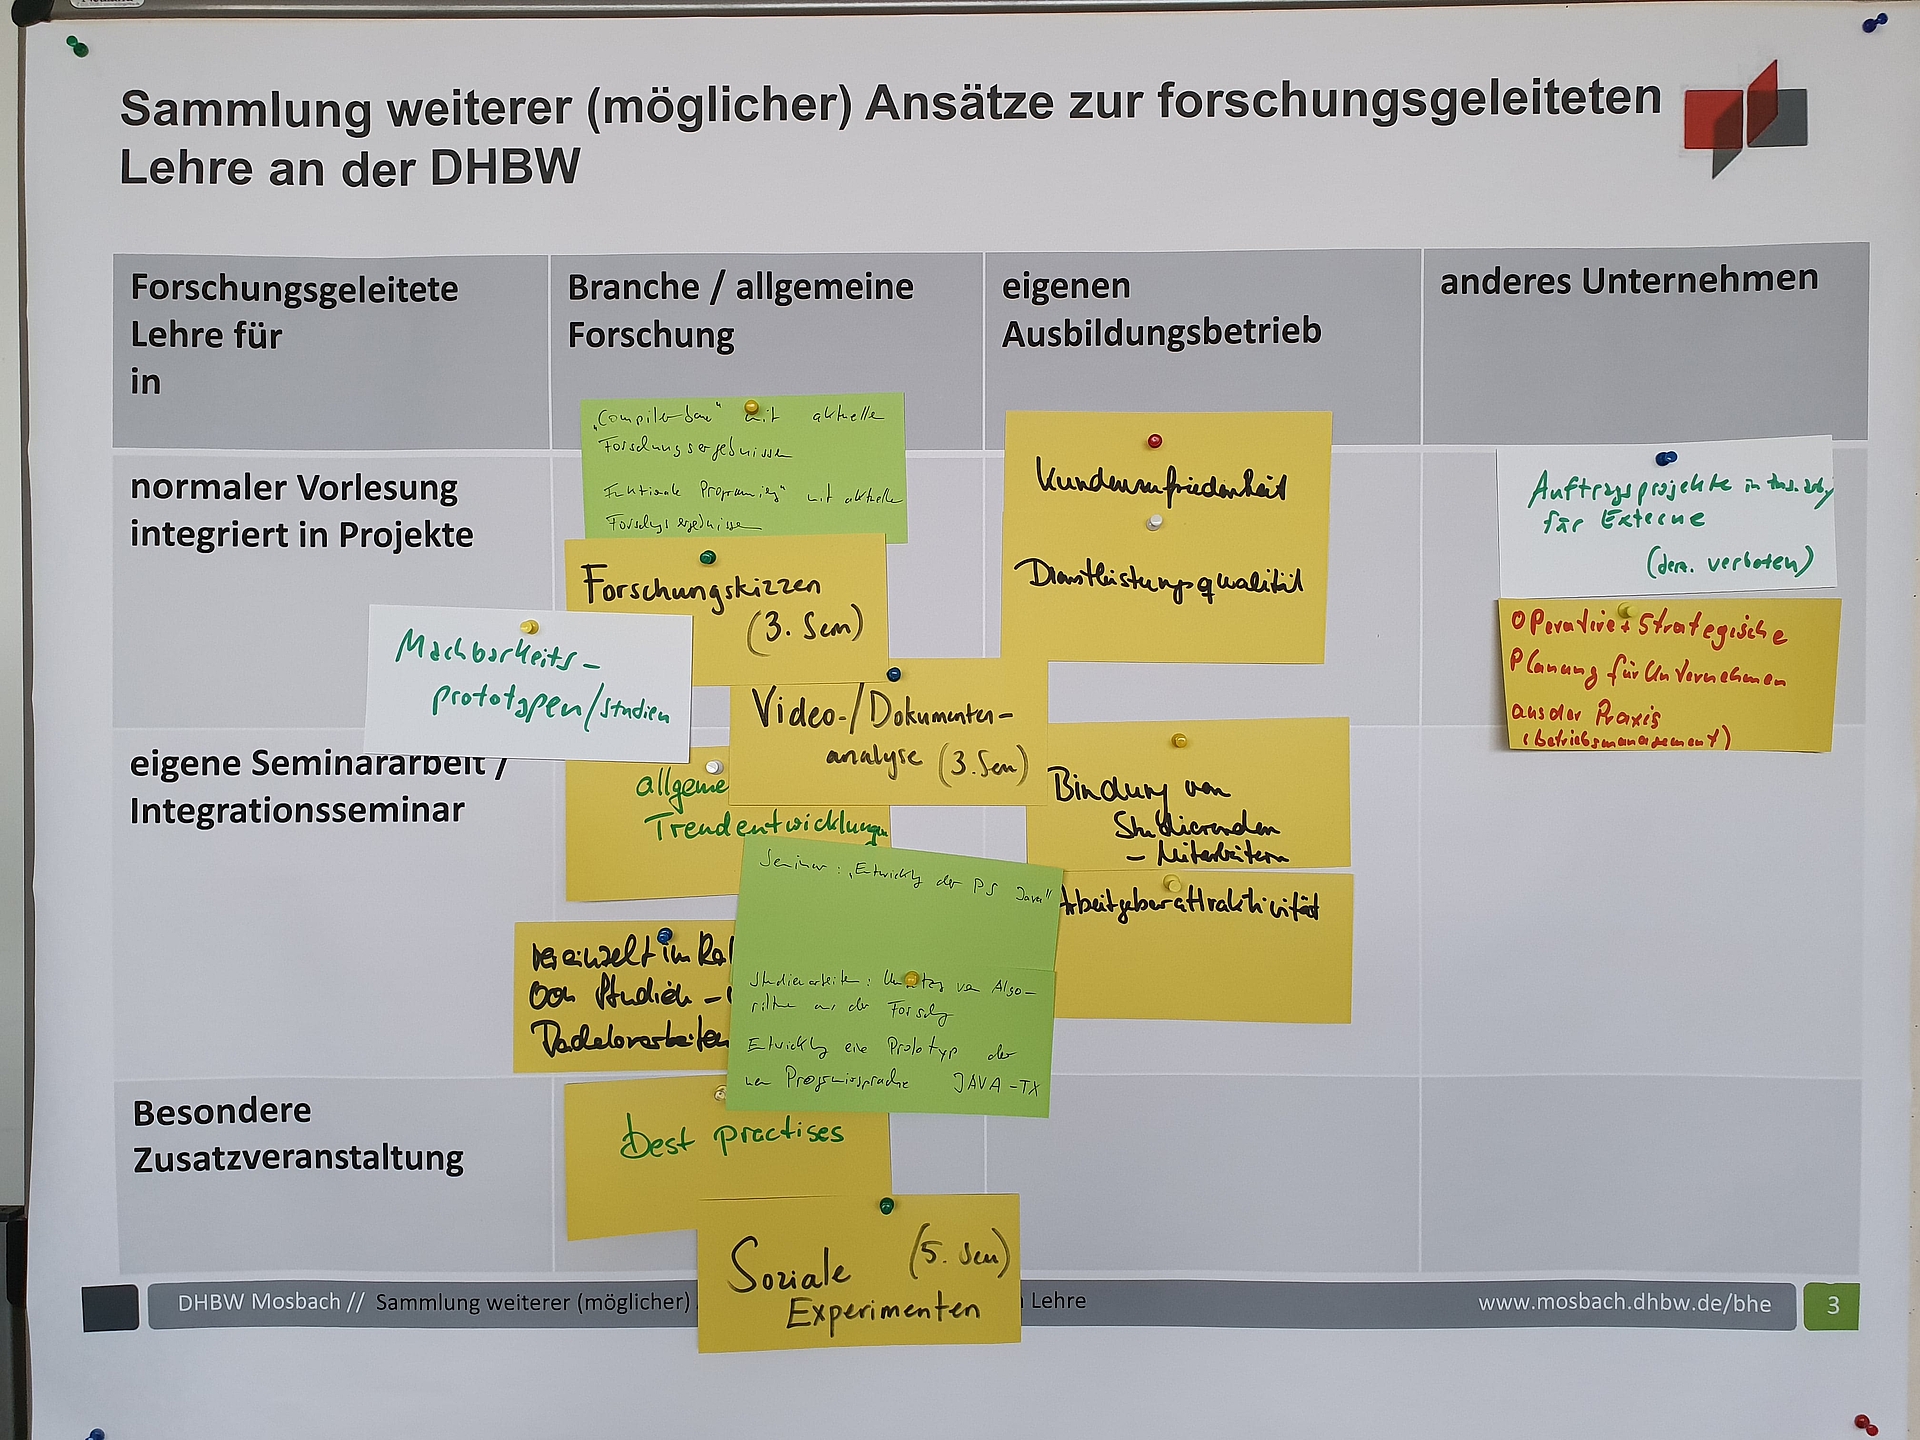 Sammlung weiterer (möglicher) Ansätze zur forschungsgeleiteten
Lehre an der DHBW
Forschungsgeleitete
Lehre für
in
Branche / allgemeine
Forschung
eigenen
Ausbildungsbetrieb
anderes Unternehmen
normaler Vorlesung
integriert in Projekte
„Compilerbau" mit aktuelle
Forschungsergebnissen
Funktionale Programmierg" mit aktuelle
Forschgsergebnissen
Forschungskizzen
(3. Sem)
Machbarkeits-
prototypen/studien
Video-/Dokumenten-
analyse (3. Sem)
Kundenzufriedenheit
Dienstleistungsqualität
Auftragsprojekte in
für Externe
(derz. verboten)
Operative + Strategische
Planung für Unternehmen
aus der Praxis
(Betriebsmanagement)
eigene Seminararbeit /
Integrationsseminar
allgeme
Trendentwicklungen
Seminar: „Entwicklg der PS Java"
vereinzelt im Ra
von Studien-
Bachelorarbeiten
Studienarbeiten: Umsetzg von Algo-
rithm aus der Forschg
Entwicklg eine Prototyp der
neu Programmiersprache JAVA-TX
Bindung von
Studierenden
- Mitarbeitern
Arbeitgeberattraktivität
Besondere
Zusatzveranstaltung
best practises
Soziale (5. Sem)
Experimenten
DHBW Mosbach // Sammlung weiterer (möglicher)
Lehre
www.mosbach.dhbw.de/bhe
3